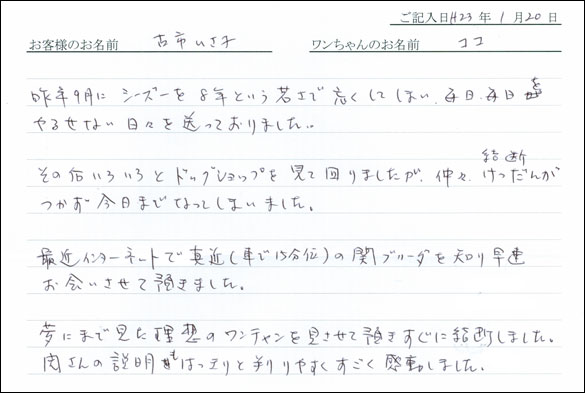 ご記入日H23年1月20日
お客様のお名前 古市いさ子 ワンちゃんのお名前 ココ
昨年9月に シーズーを 8年という若さで 亡くしてしまい、毎日、毎日を
やるせない日々を送っておりました。
その后いろいろとドッグショップを見て回りましたが、仲々、けつだんが
結断
つかず今日までなってしまいました。
最近インターネートで真近(車で15分位)の関ブリーダを知り早速
お会いさせて頂きました。
夢にまで見た理想のワンチャンを見させて頂きすぐに結断しました。
関さんの説明もはっきりと判りやすくすごく感動しました。